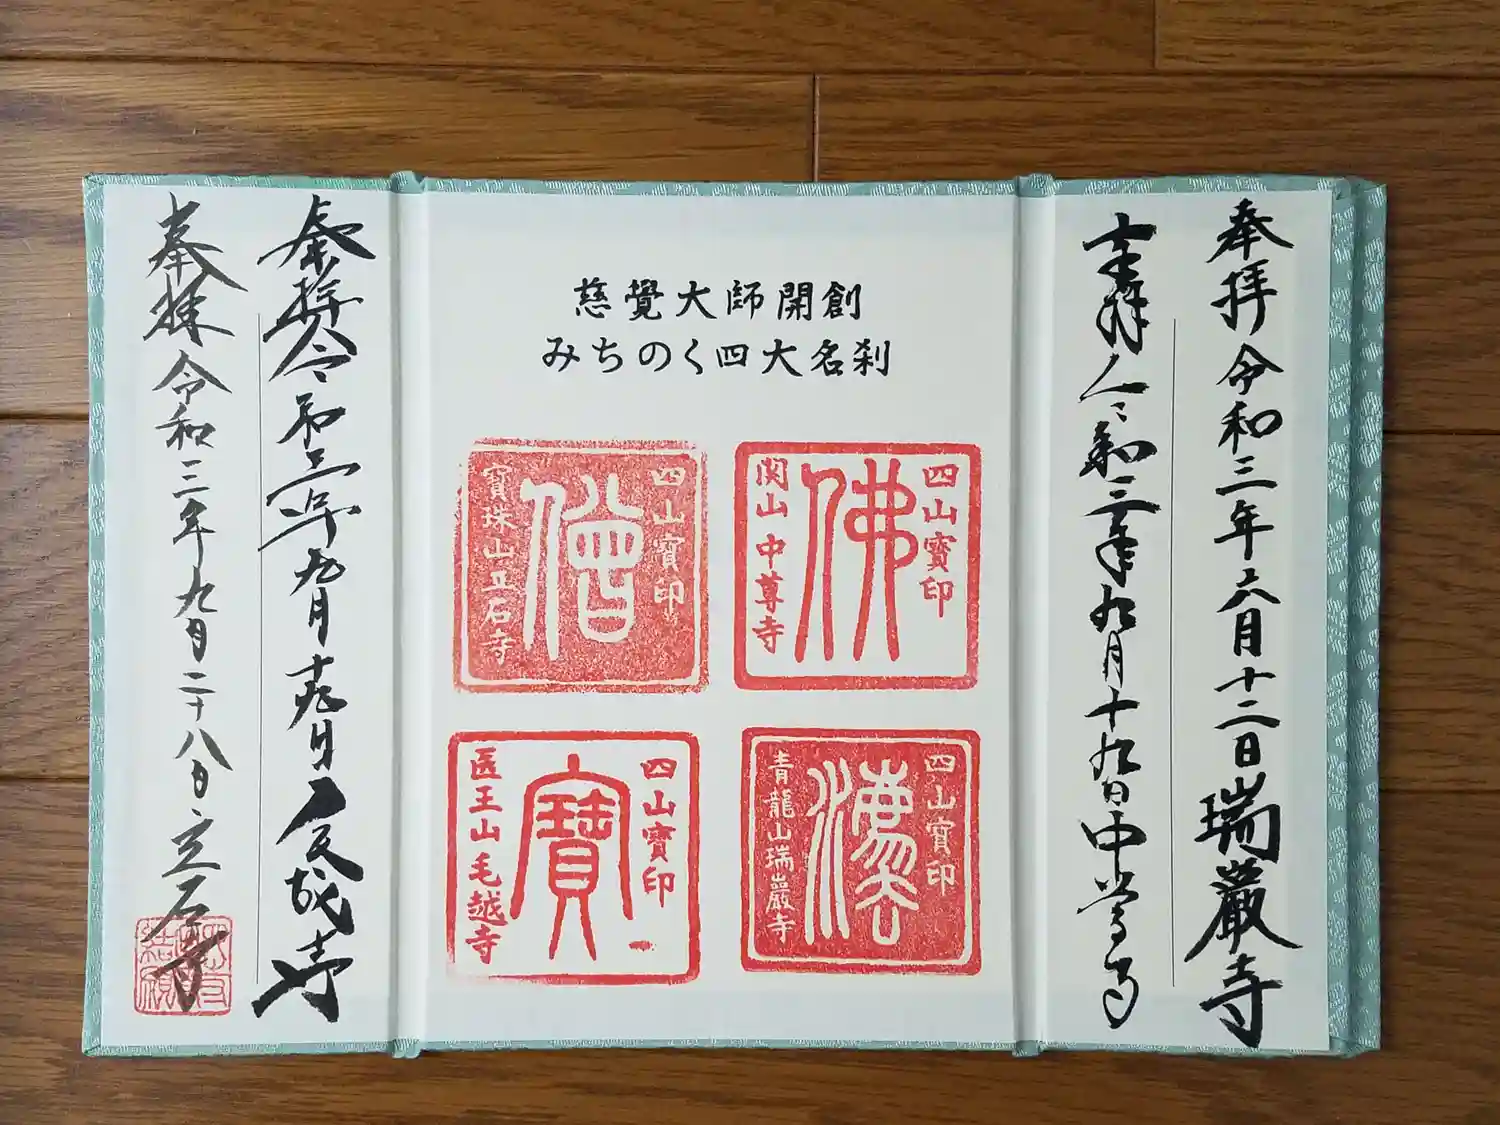 奉拝 令和三年六月十二日 瑞巌寺
奉拝 令和三年九月十九日 中尊寺
慈覺大師開創
みちのく四大名刹
四山寶印
佛
関山 中尊寺
四山寶印
僧
寶珠山立石寺
四山寶印
青龍山瑞巖寺
四山寶印
寶
医王山毛越寺
奉拝 令和三年九月十九日 毛越寺
奉拝 令和三年九月二十八日 立石寺
結願